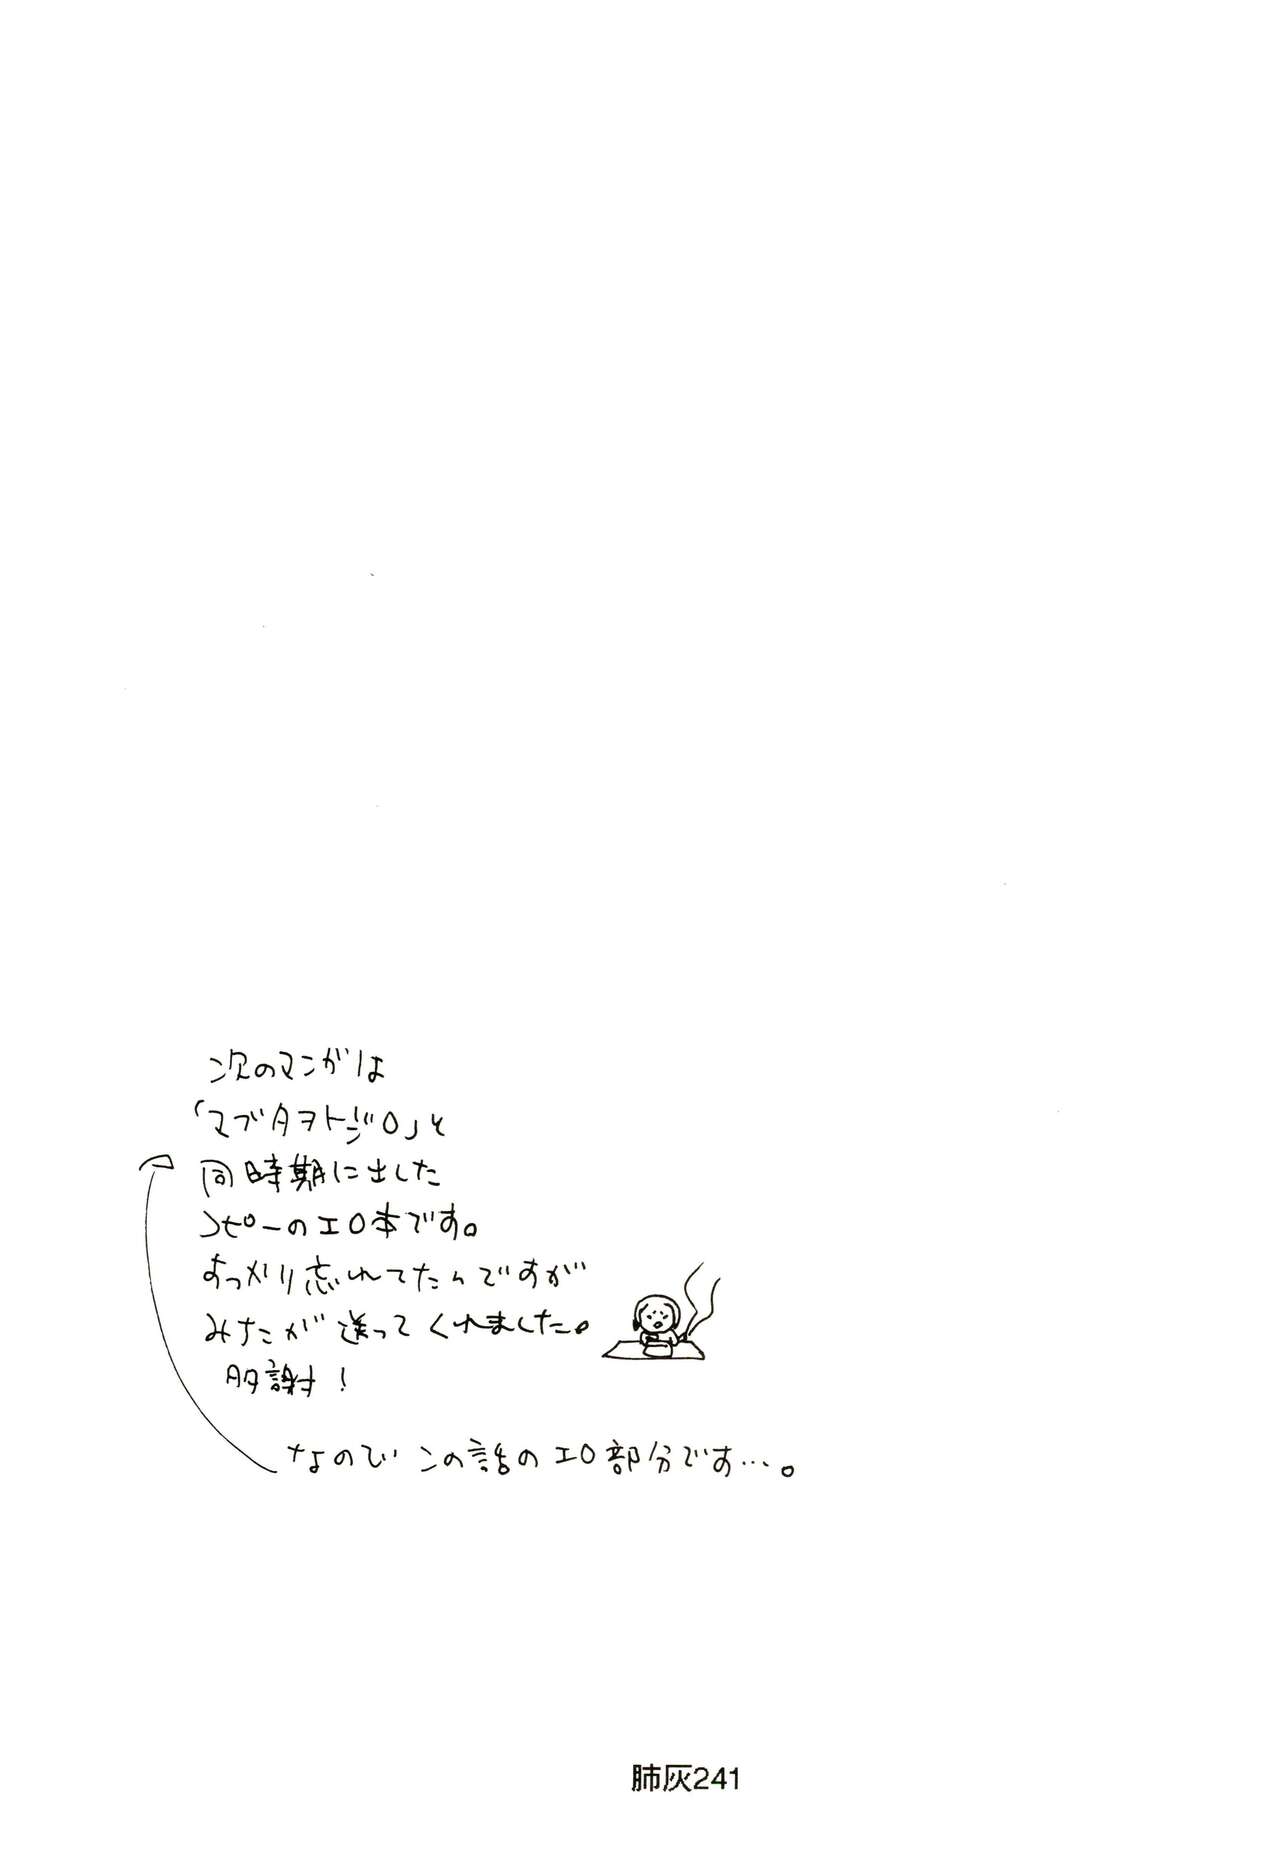 次のマンガは
「マブタヲトジロ」と
同時期に出した
コピーのエロ本です。
すっかり忘れてたんですが
みちたが送ってくれました。
多謝!
なのでこの話のエロ部分です…。
肺灰241